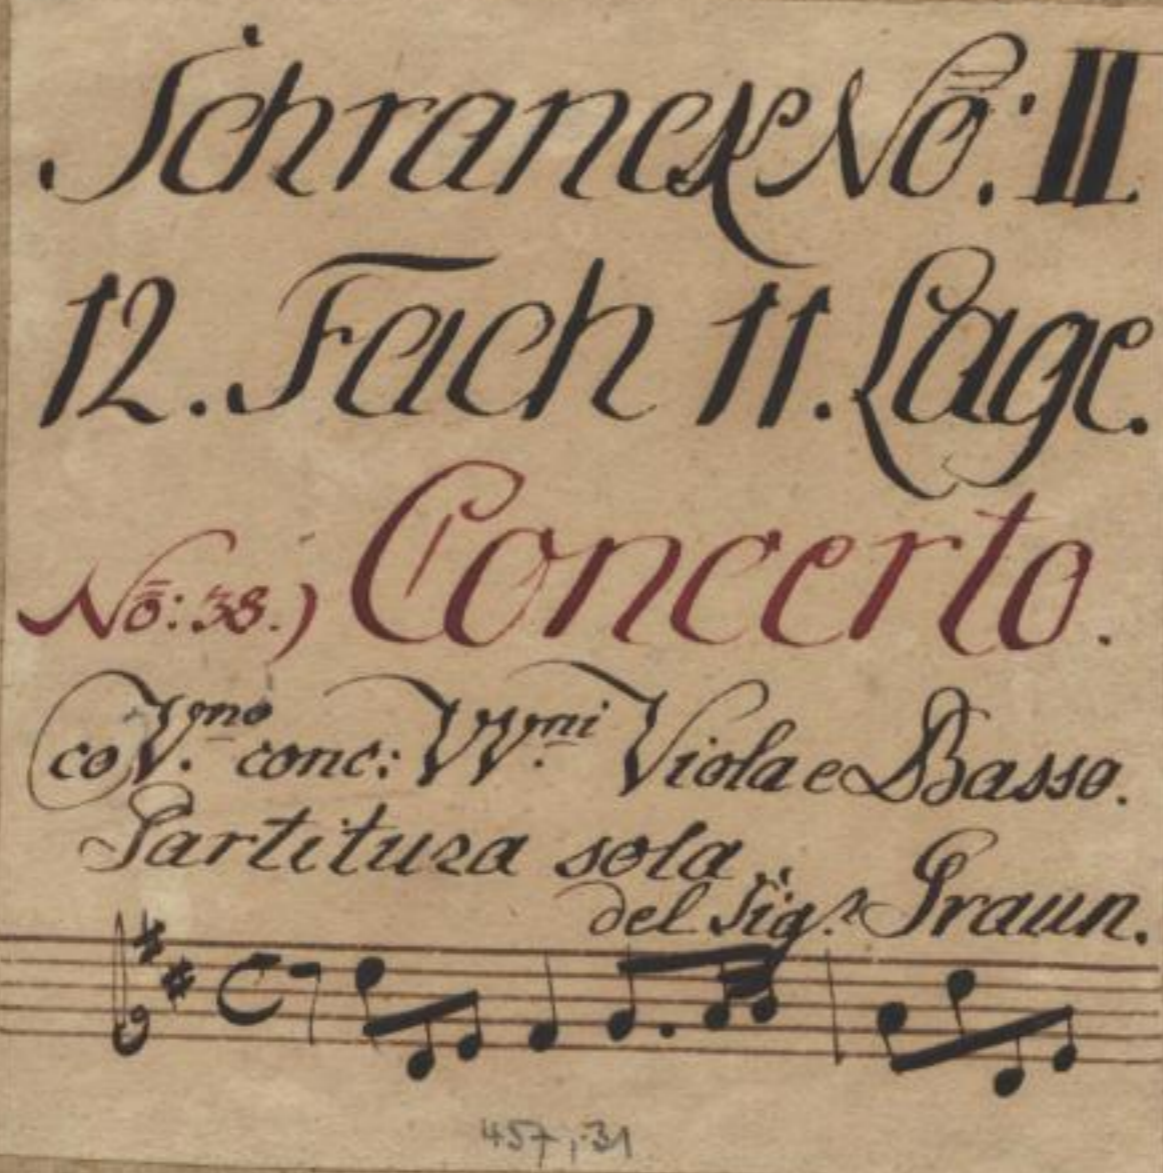 Schranck No: II.
12. Fach 11. Lage.
No: 38.) Concerto.
co V.no conc: VV.ni Viola e Basso.
Partitura sola
del Sig.r Graun.
457,31